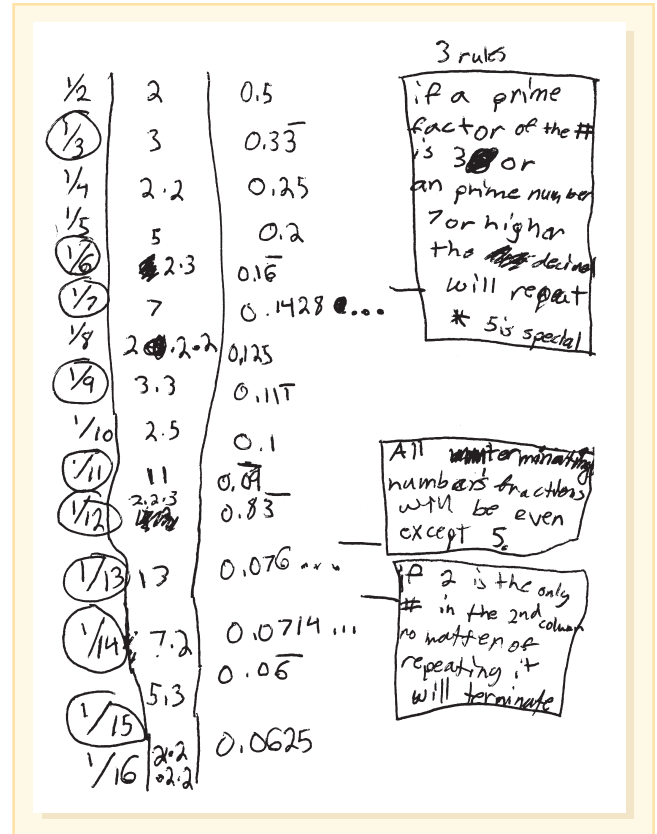 3 rules
1/2 2 0.5
1/3 3 0.33̅
1/4 2.2 0.25
1/5 5 0.2
1/6 2.3 0.16̅
1/7 7 0.1428 ...
1/8 2.2.2 0.125
1/9 3.3 0.111̅
1/10 2.5 0.1
1/11 11 0.0̅9̅
1/12 2.2.3 0.83̅
1/13 13 0.076...
1/14 7.2 0.0714...
1/15 5.3 0.06̅
1/16 2.2 0.0625
.2.2
if a prime
factor of the #
is 3 or
an prime number
7 or higher
the decimal
will repeat
* 5 is special
All terminating
numbers fractions
will be even
except 5.
if 2 is the only
# in the 2nd column
no matter of
repeating it
will terminate